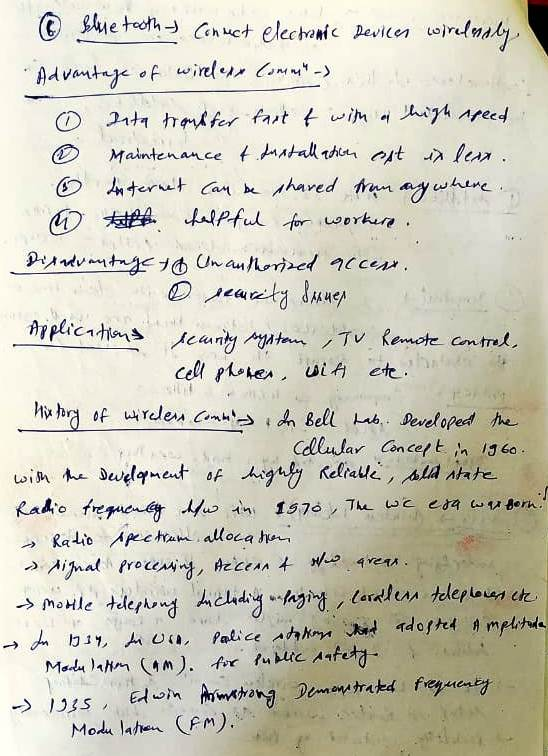 ⑥ Bluetooth → Connect electronic Devices wirelessly
Advantage of wireless Commⁿ →
① Data transfer fast & with a high speed
② Maintenance & Installation cost is less.
③ Internet can be shared from anywhere.
④ helpful for workers.
Disadvantage → ① Unauthorized access.
② security Issues
Applications security system, TV Remote control,
cell phones, wifi etc.
History of wireless Commⁿ → In Bell Lab. Developed the
Cellular Concept in 1960.
with the Development of highly Reliable, solid state
Radio frequency h/w in 1970, The WC era was Born.
→ Radio spectrum allocation
→ signal processing, Access & N/w areas.
→ Mobile telephony Including Paging, Cordless telephones etc
→ In 1934, In USA, Police stations adopted Amplitude
Modulation (AM). for Public safety
→ 1935, Edwin Armstrong Demonstrated frequency
Modulation (FM).